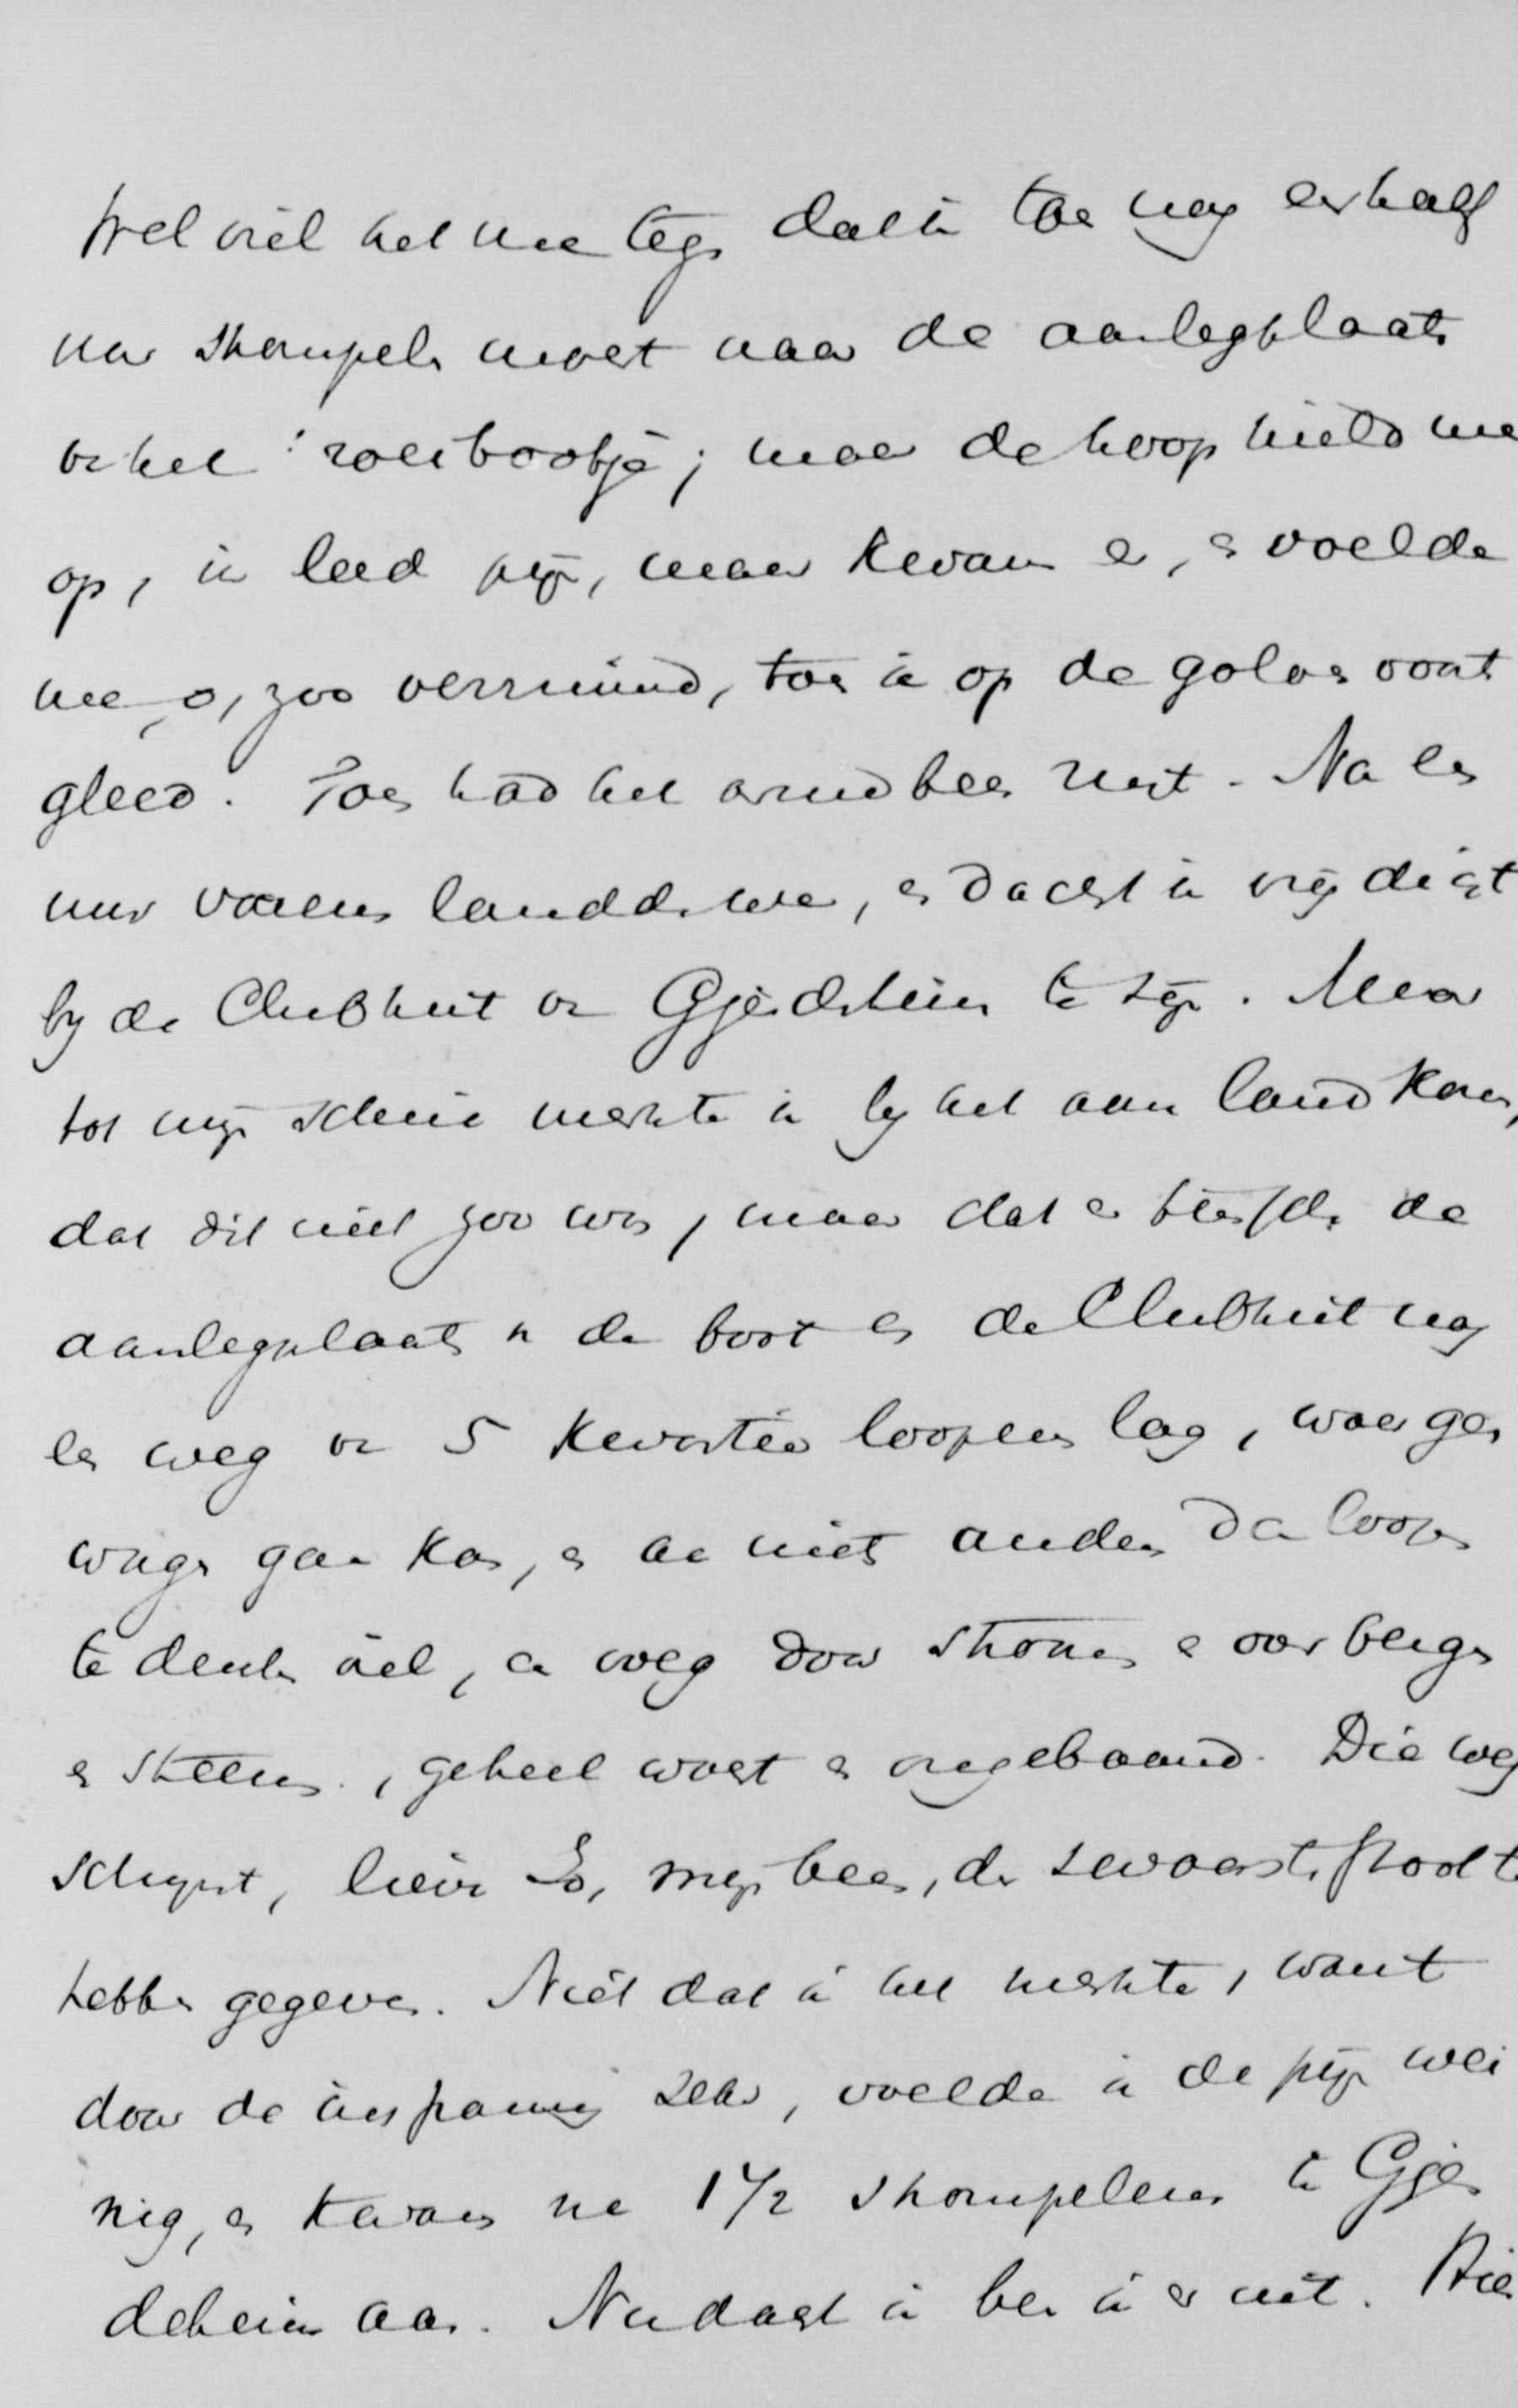 Wel viel het me tegen dat ik toe nog een half
uur strompelen moest naar de aanlegplaats
van het roeibootje; maar de hoop hield me
op, ik leed pijn, maar kwam er, en voelde
me, o, zoo verruimd, toen ik op de golven voort
gleed. Toen had het arme been rust. Na een
uur varens landden we, en dacht ik vrij dicht
bij de Clubhut van Gjendeheim te zijn. Maar
tot mijn schrik merkte ik bij het aan land komen,
dat dit niet zoo was, maar dat er tusschen de
aanlegplaats van de boot en de Clubhut nog
een weg van 5 kwartier loopens lag, waar geen
wagen gaan kon, en aan niets anders dan loopen
te denken viel, een weg door stroomen en over bergen
en steenen, geheel woest en ongebaand. Die weg
schijnt, lieve Jo, mijn been, de zwaarste stoot te
hebben gegeven. Niet dat ik het merkte, want
door de inspanning zelve, voelde ik de pijn wei
nig, en kwam na 1 1/2 strompelens te Gjen
deheim aan. Nu dacht ik ben ik er uit. Hier